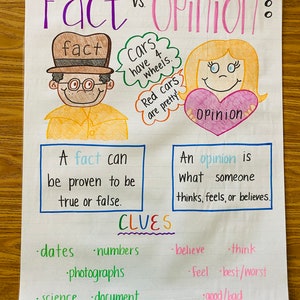 Fact vs Opinion
fact
Cars
have 4
wheels
Red cars
are pretty
opinion
A fact can
be proven to be
true or false.
An opinion is
what someone
thinks, feels, or believes.
CLUES
·dates ·numbers
·photographs
·science ·document
·believe ·think
·feel ·best/worst
·good/bad